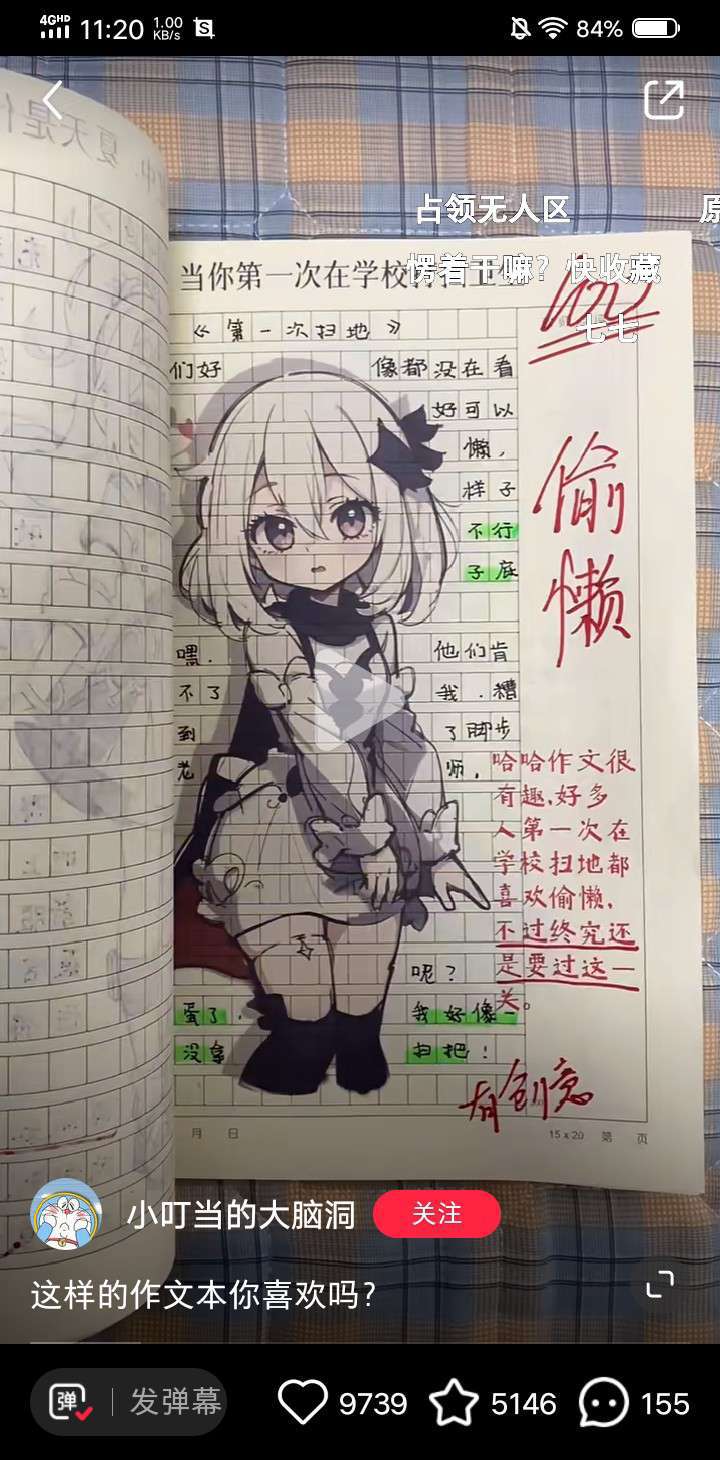 4GHD 11:20 1.00 KB/s 84%
占领无人区
原
愣着干嘛？快收藏
七七
当你第一次在学校
《第一次扫地》
们好 像都没在看
好可以
懒，
样子
不行
子底
嘿. 他们肯
不了 我.糟
到 了脚步
老 师，
呢？
蛋了. 我好像一
没拿 扫把！
偷懒
哈哈作文很
有趣，好多
人第一次在
学校扫地都
喜欢偷懒，
不过终究还
是要过这一
关。
有创意
月 日
15x20 第 页
小叮当的大脑洞 关注
这样的作文本你喜欢吗？
弹 发弹幕 9739 5146 155